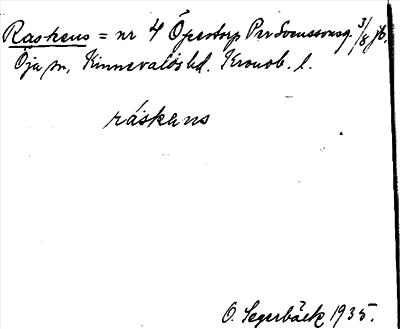 Raskens = nr 4 Öpestorp Per Svenssonsg. 3/8 jb.
Öja sn, Kinnevalds hd. Kronob. l.
ráskens
O. Segerbäck 1935.